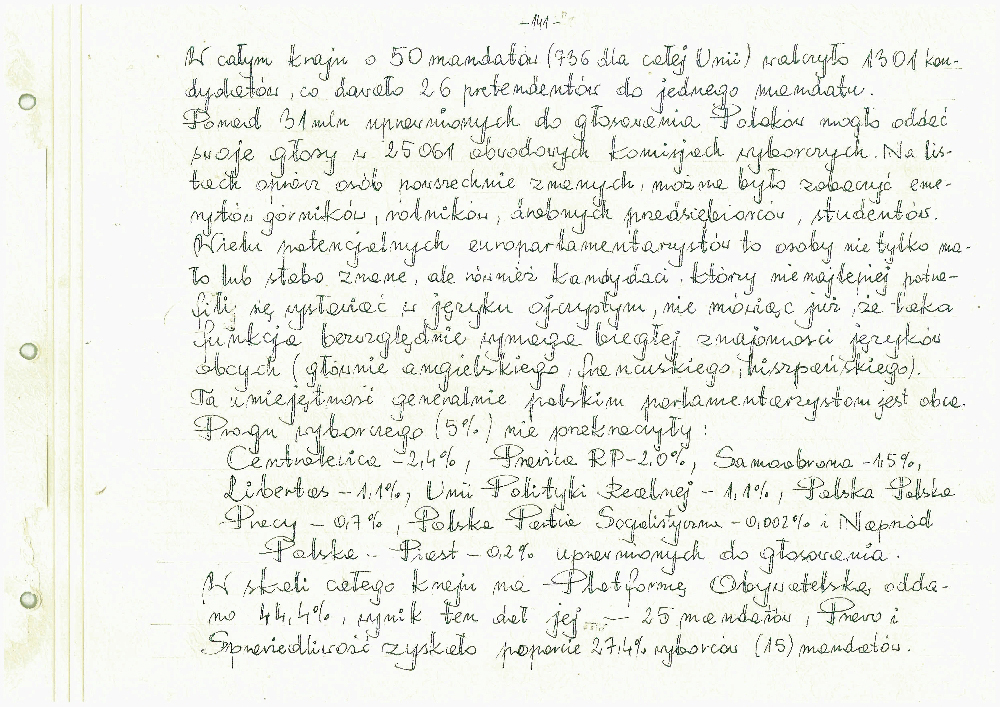 - 141 -
W całym kraju o 50 mandatów (736 dla całej Unii) walczyło 1301 kan-
dydatów, co dawało 26 pretendentów do jednego mandatu.
Ponad 31 mln uprawnionych do głosowania Polaków mogło oddać
swoje głosy w 25061 obwodowych komisjach wyborczych. Na lis-
tach oprócz osób powszechnie znanych, można było zobaczyć eme-
rytów górników, rolników, drobnych przedsiębiorców, studentów.
Wielu potencjalnych europarlamentarzystów to osoby nie tylko ma-
ło lub słabo znane, ale również kandydaci, którzy nienajlepiej potra-
fili się wysławiać w języku ojczystym, nie mówiąc już, że taka
funkcja bezwzględnie wymaga biegłej znajomości języków
obcych (głównie angielskiego, francuskiego, hiszpańskiego).
Ta umiejętność generalnie polskim parlamentarzystom jest obca.
Progu wyborczego (5%) nie przekroczyły:
Centrolewica - 2,4%, Prawica RP - 2,0%, Samoobrona - 1,5%,
Libertas - 1,1%, Unii Polityki Realnej - 1,1%, Polska Polska
Pracy - 0,7%, Polska Partia Socjalistyczna - 0,002% i Naprzód
Polsko - Piast - 0,2% uprawnionych do głosowania.
W skali całego kraju na Platformę Obywatelską odda-
no 44,4%, wynik ten dał jej - 25 mandatów, Prawo i
Sprawiedliwość zyskało poparcie 27,4% wyborców (15) mandatów.